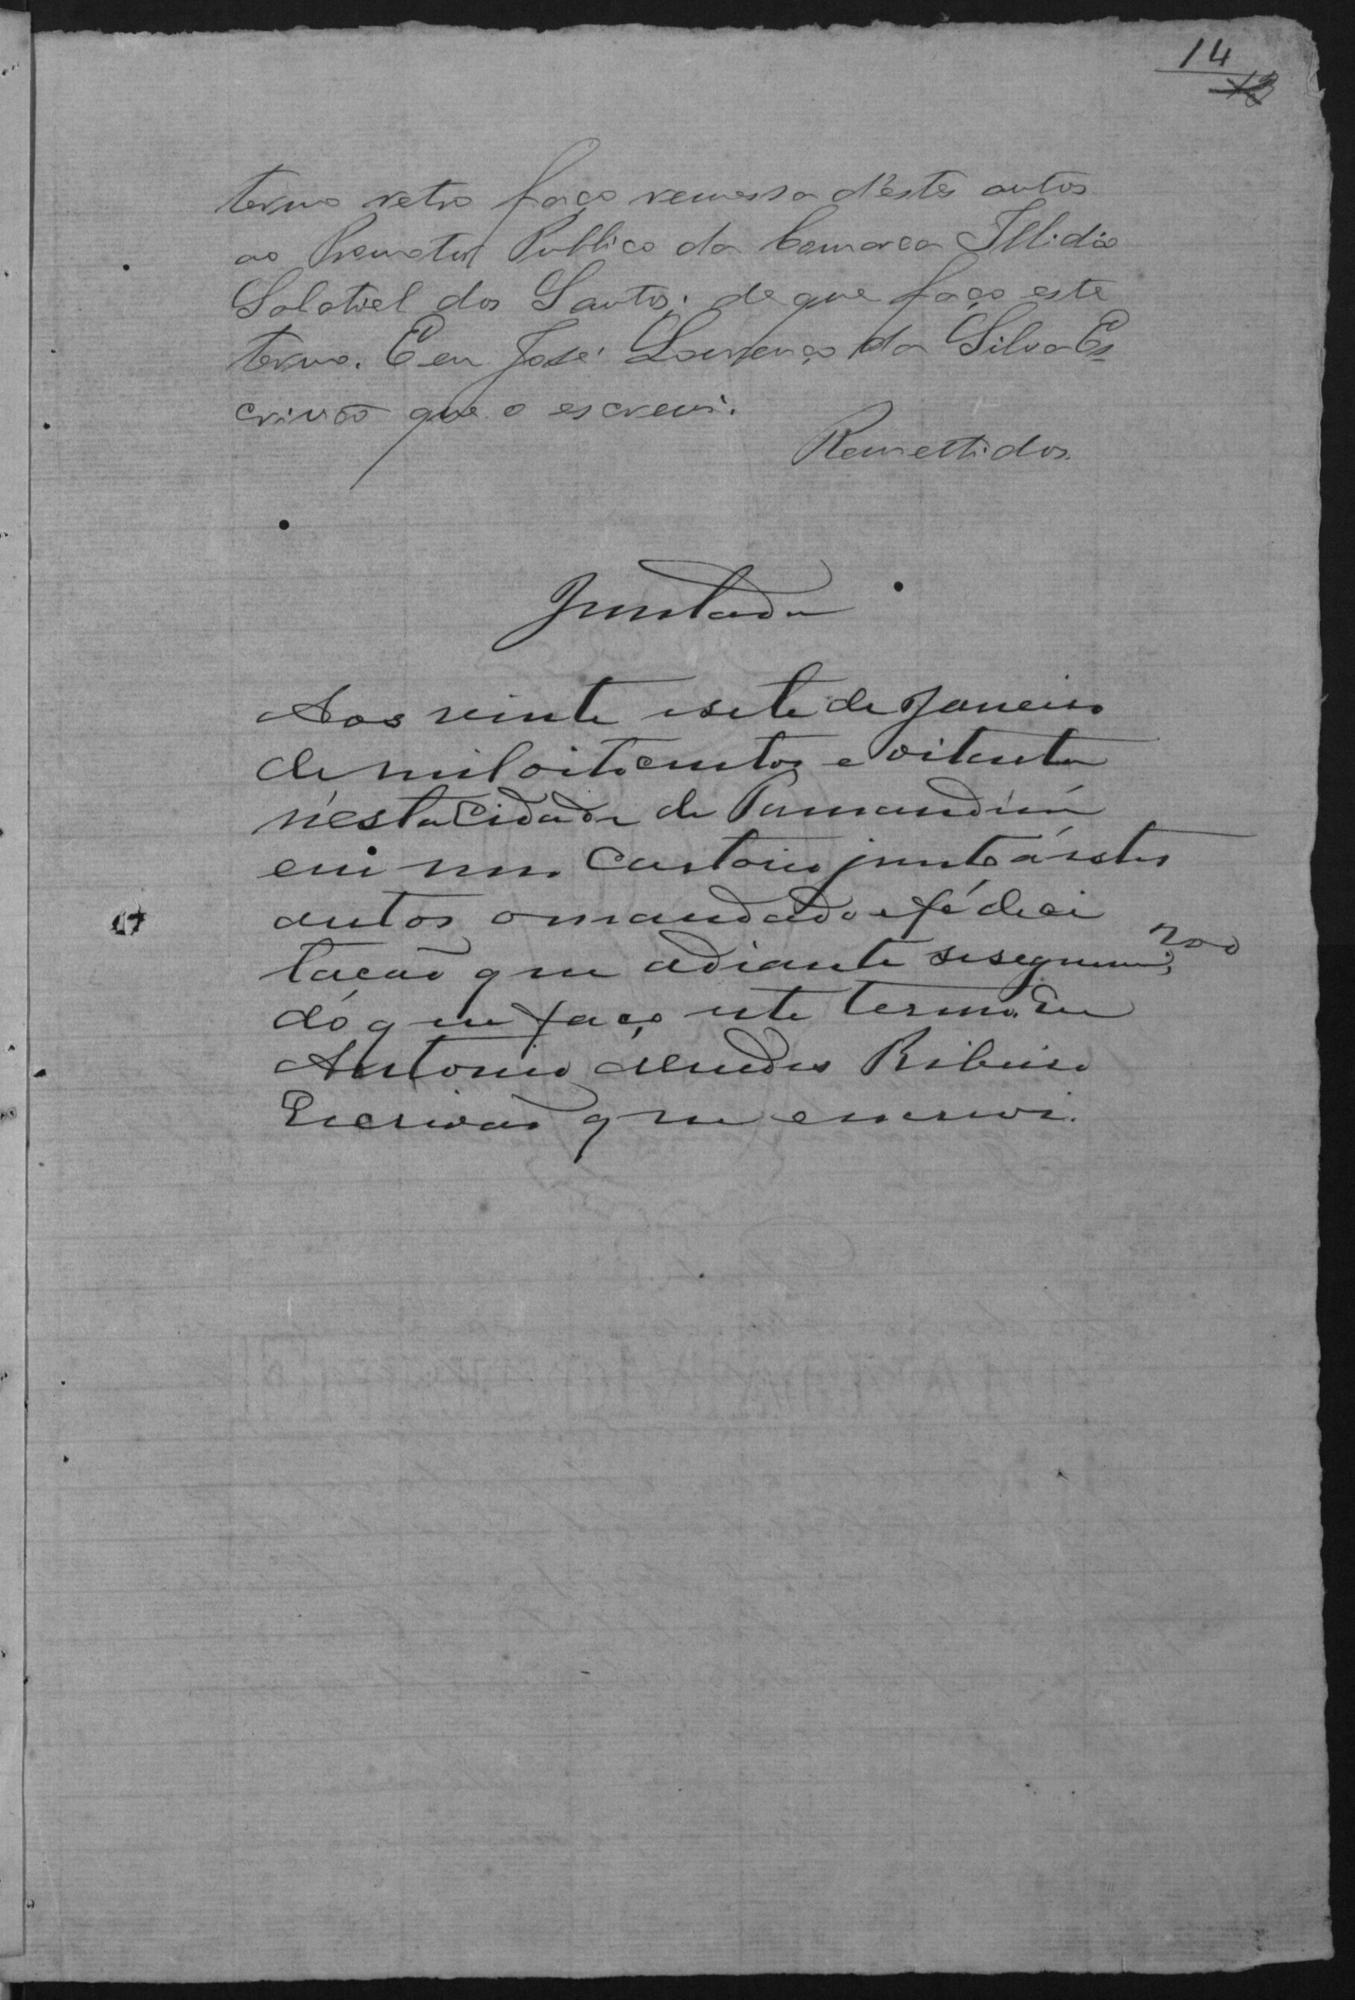 14
13
termo retro faço remessa d'estes autos
ao Promotor Publico da Comarca Illidio
Salatiel dos Santos; de que faço este
termo. E eu José Lourenço da Silva Es-
crivão que o escrevi.
Remettidos.
Juntada
Aos vinte e sete de Janeiro
de mil oito centos e oitenta
n'esta Cidade de Mamandiú
em meu Cartorio junto á estes
autos o mandado e fé de ci
tacão que adiante se seguem; 200
do que faço este termo. Eu
Antonio Mendes Ribeiro
Escrivão que escrevi.